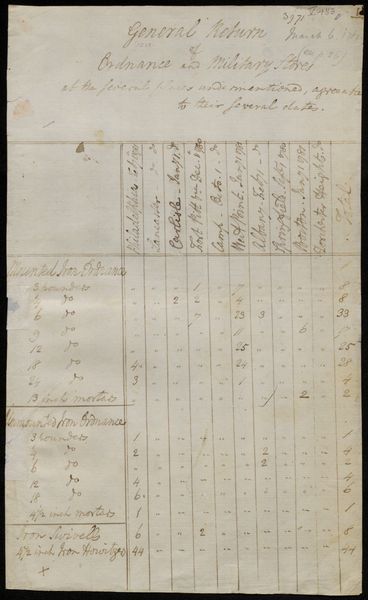 General Return
of
Ordnance and Military Stores
at the several places undermentioned, agreeable
to their several dates.
Philadelphia
Lancaster
Carlisle Jany 1. do
Fort Pitt Dec. 1780
Camp Octo. 1 do
West Point Jany 1781
Albany
Springfield
Boston Jany 1781
Dorchester Heights do
Total
Mounted Iron Ordnance
3 pounders 1 7 8
4 do 2 2 4 8
6 do 7 23 3 33
9 do 11 6 17
12 do 25 25
18 do 4 24 28
24 do 3 1 4
13 inch mortars 2 2
Unmounted Iron Ordnance
3 pounders 1 1
4 do 2 2 4
6 do 2 2
12 do 4 4
18 do 6 6
4½ inch mortars 1 1
Iron Swivells 6 2 8
4½ inch Iron Howitzs 44 44
x